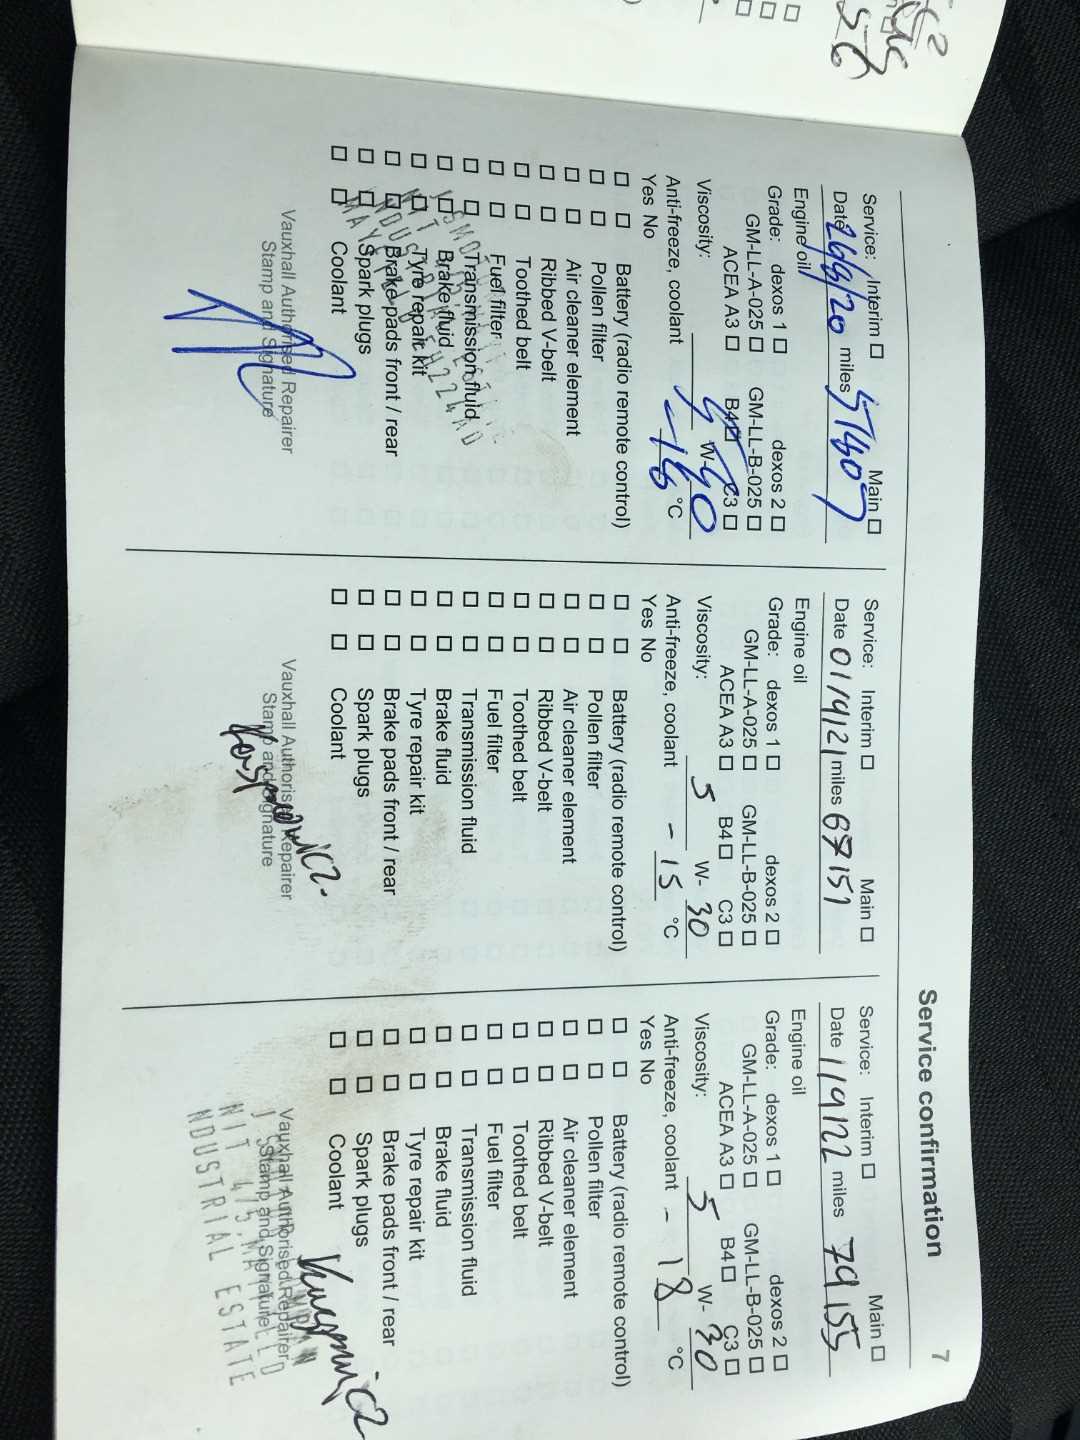 Service confirmation
7
Service: Interim □ Main □
Date miles
Engine oil
Grade: dexos 1 □ dexos 2 □
GM-LL-A-025 □ GM-LL-B-025 □
ACEA A3 □ B4 □ C3 □
Viscosity: W-40
Anti-freeze, coolant -16 °C
Yes No
□ □ Battery (radio remote control)
□ □ Pollen filter
□ □ Air cleaner element
□ □ Ribbed V-belt
□ □ Toothed belt
□ □ Fuel filter
□ □ Transmission fluid
□ □ Brake fluid
□ □ Tyre repair kit
□ □ Brake pads front / rear
□ □ Spark plugs
□ □ Coolant
Vauxhall Authorised Repairer
Stamp and Signature
Service: Interim □ Main □
Date 01/9/21 miles 67151
Engine oil
Grade: dexos 1 □ dexos 2 □
GM-LL-A-025 □ GM-LL-B-025 □
ACEA A3 □ B4 □ C3 □
Viscosity: 5 W- 30
Anti-freeze, coolant -15 °C
Yes No
□ □ Battery (radio remote control)
□ □ Pollen filter
□ □ Air cleaner element
□ □ Ribbed V-belt
□ □ Toothed belt
□ □ Fuel filter
□ □ Transmission fluid
□ □ Brake fluid
□ □ Tyre repair kit
□ □ Brake pads front / rear
□ □ Spark plugs
□ □ Coolant
Vauxhall Authorised Repairer
Stamp and Signature
Service: Interim □ Main □
Date 1/9/22 miles 79155
Engine oil
Grade: dexos 1 □ dexos 2 □
GM-LL-A-025 □ GM-LL-B-025 □
ACEA A3 □ B4 □ C3 □
Viscosity: 5 W- 30
Anti-freeze, coolant -18 °C
Yes No
□ □ Battery (radio remote control)
□ □ Pollen filter
□ □ Air cleaner element
□ □ Ribbed V-belt
□ □ Toothed belt
□ □ Fuel filter
□ □ Transmission fluid
□ □ Brake fluid
□ □ Tyre repair kit
□ □ Brake pads front / rear
□ □ Spark plugs
□ □ Coolant
Vauxhall Authorised Repairer
Stamp and Signature
NDUSTRIAL ESTATE